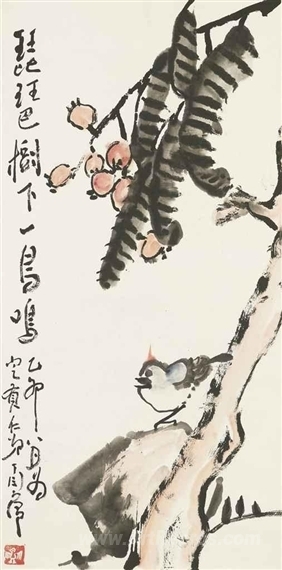 琵琶樹下一鳥鳴
乙卯八月為
仁弟